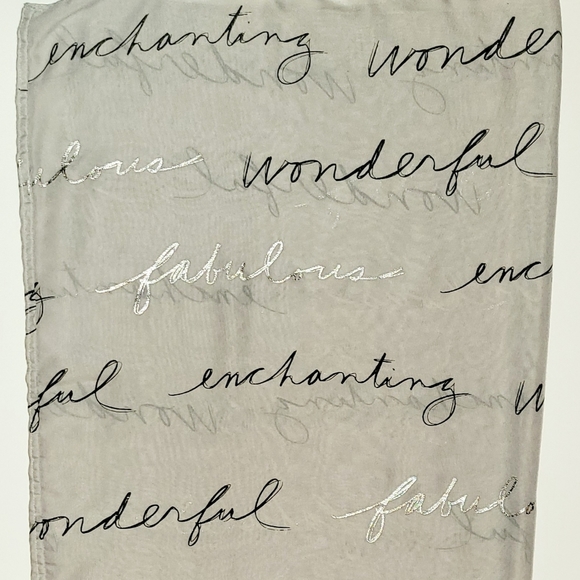 enchanting wonder
ulous wonderful
fabulous enc
g
ful enchanting w
wonderful fabulo